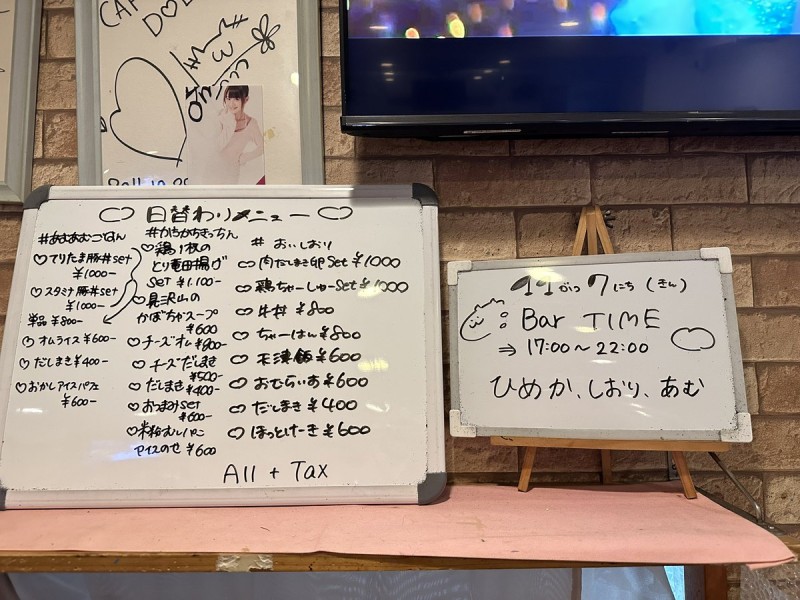 日替わりメニュー
#あむあむごはん
♡てりたま豚丼set
¥1000-
♡スタミナ豚丼set
¥1000-
単品¥800-
♡オムライス¥600-
♡だしまき¥400-
♡おかしアイスパフェ
¥600-
♡鶏1枚の
とり竜田揚げ
set ¥1.100-
♡見沢山の
かぼちゃスープ
¥600
♡チーズオム¥800-
♡チーズだしまき
¥500-
♡だしまき¥400-
♡おつまみset
¥600-
アイスのせ ¥600
# おいしおり
♡肉だしまき卵set ¥1000
♡鶏ちゃーしゅーset ¥1000
♡牛丼 ¥800
♡ちゃーはん¥800
♡天津飯¥600
♡おむらいす¥600
♡だしまき¥400
♡ほっとけーき¥600
All + Tax
11がつ7にち(きん)
Bar TIME
⇒ 17:00~22:00
ひめか、しおり、あむ